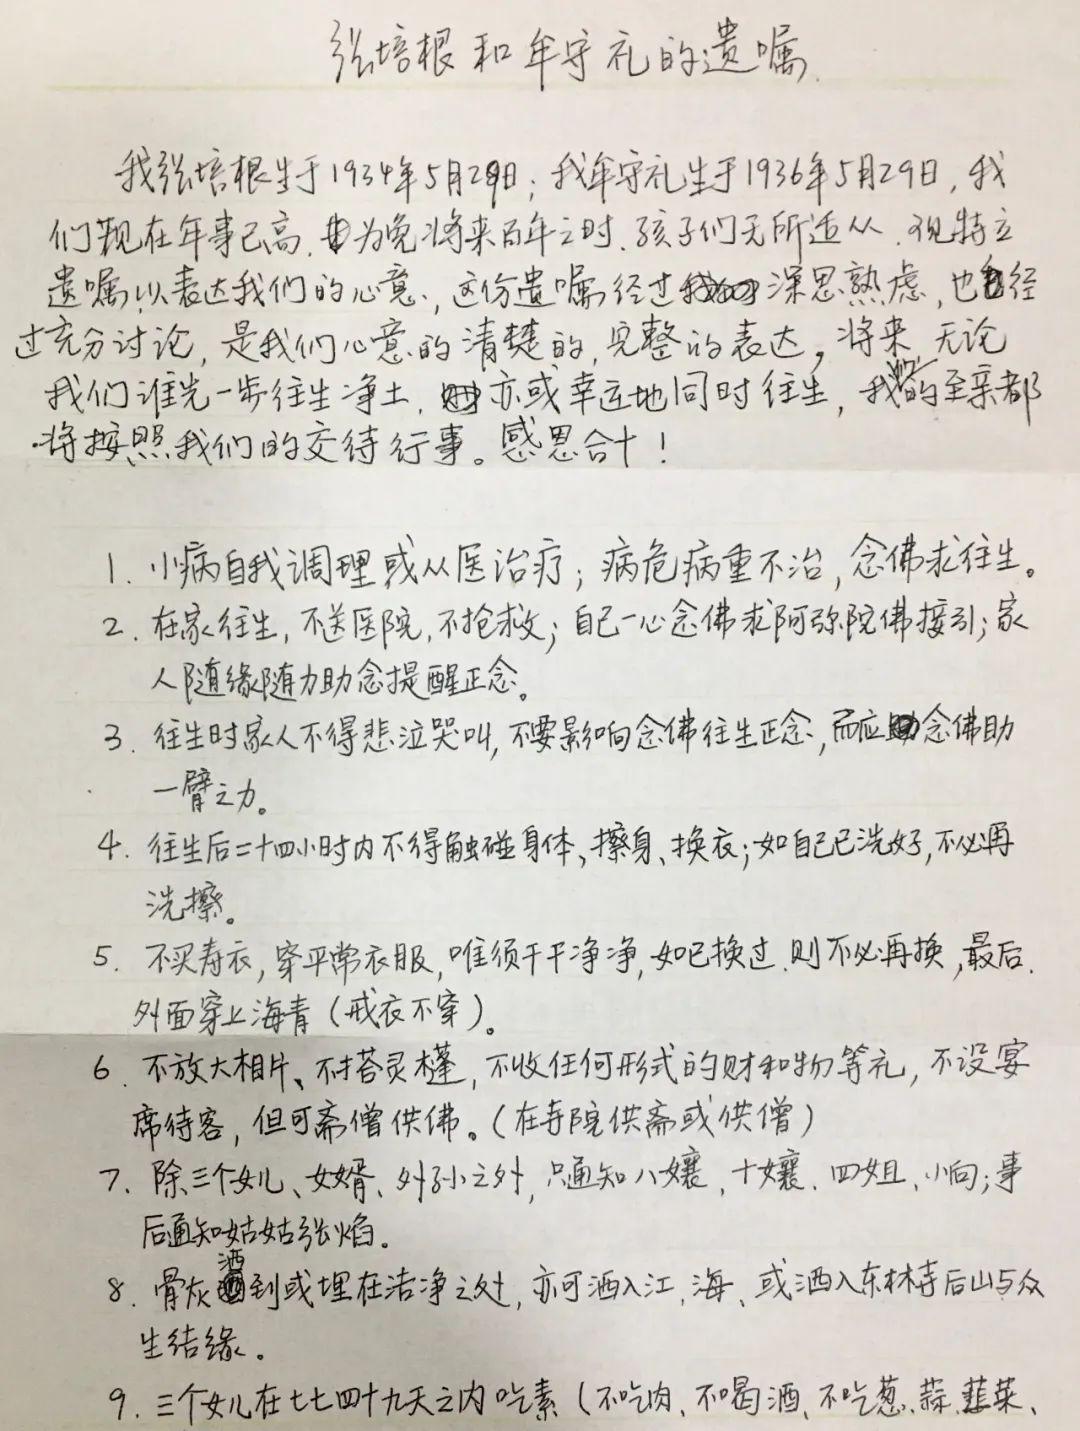 张培根和牟守礼的遗嘱
我张培根生于1934年5月29日；我牟守礼生于1936年5月29日，我
们现在年事已高，为免将来百年之时，孩子们无所适从，现特立
遗嘱，以表达我们的心意，这份遗嘱经过深思熟虑，也经
过充分讨论，是我们心意的清楚的，完整的表达。将来无论
我们谁先一步往生净土，亦或幸运地同时往生，我们的至亲都
将按照我们的交待行事。感恩合十！
1. 小病自我调理或从医治疗；病危病重不治，念佛求往生。
2. 在家往生，不送医院，不抢救；自己一心念佛求阿弥陀佛接引；家
人随缘随力助念提醒正念。
3. 往生时家人不得悲泣哭叫，不要影响念佛往生正念，而应念佛助
一臂之力。
4. 往生后二十四小时内不得触碰身体、擦身、换衣；如自己已洗好，不必再
洗擦。
5. 不买寿衣，穿平常衣服，唯须干干净净，如已换过，则不必再换，最后，
外面穿上海青（戒衣不穿）。
6. 不放大相片、不搭灵棚，不收任何形式的财和物等礼，不设宴
席待客，但可斋僧供佛。（在寺院供斋或供僧）
7. 除三个女儿、女婿、外孙之外，只通知八孃，十孃、四姐、小向；事
后通知姑姑张焰。
8. 骨灰洒到或埋在洁净之处，亦可洒入江、海、或洒入东林寺后山与众
生结缘。
9. 三个女儿在七七四十九天之内吃素（不吃肉、不喝酒、不吃葱、蒜、韭菜、